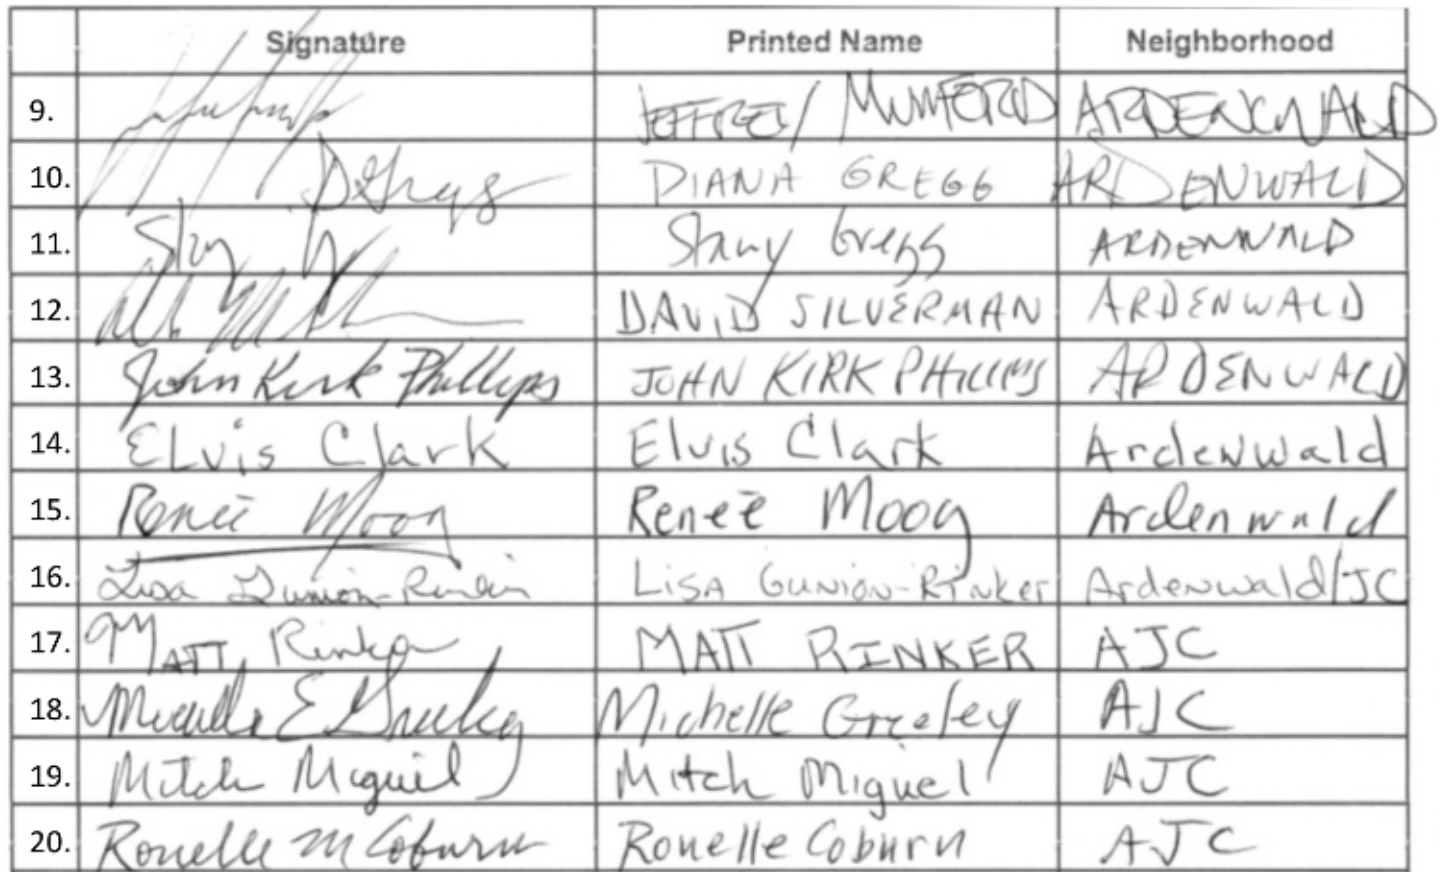 Signature Printed Name Neighborhood
9. JEFFREY MUMFORD ARDENWALD
10. DGregg DIANA GREGG ARDENWALD
11. Gregg ARDENWALD
12. DAVID SILVERMAN ARDENWALD
13. John Kirk Phillips JOHN KIRK PHILLIPS ARDENWALD
14. ELvis Clark Elvis Clark Ardenwald
15. Renée Moog Renée Moog Ardenwald
16. Lisa Gunion-Rinker LISA GUNION-RINKER Ardenwald/JC
17. MATT Rinker MATT RINKER AJC
18. Michelle E Greeley Michelle Greeley AJC
19. Mitch Miguel Mitch Miguel AJC
20. Ronelle M Coburn Ronelle Coburn AJC